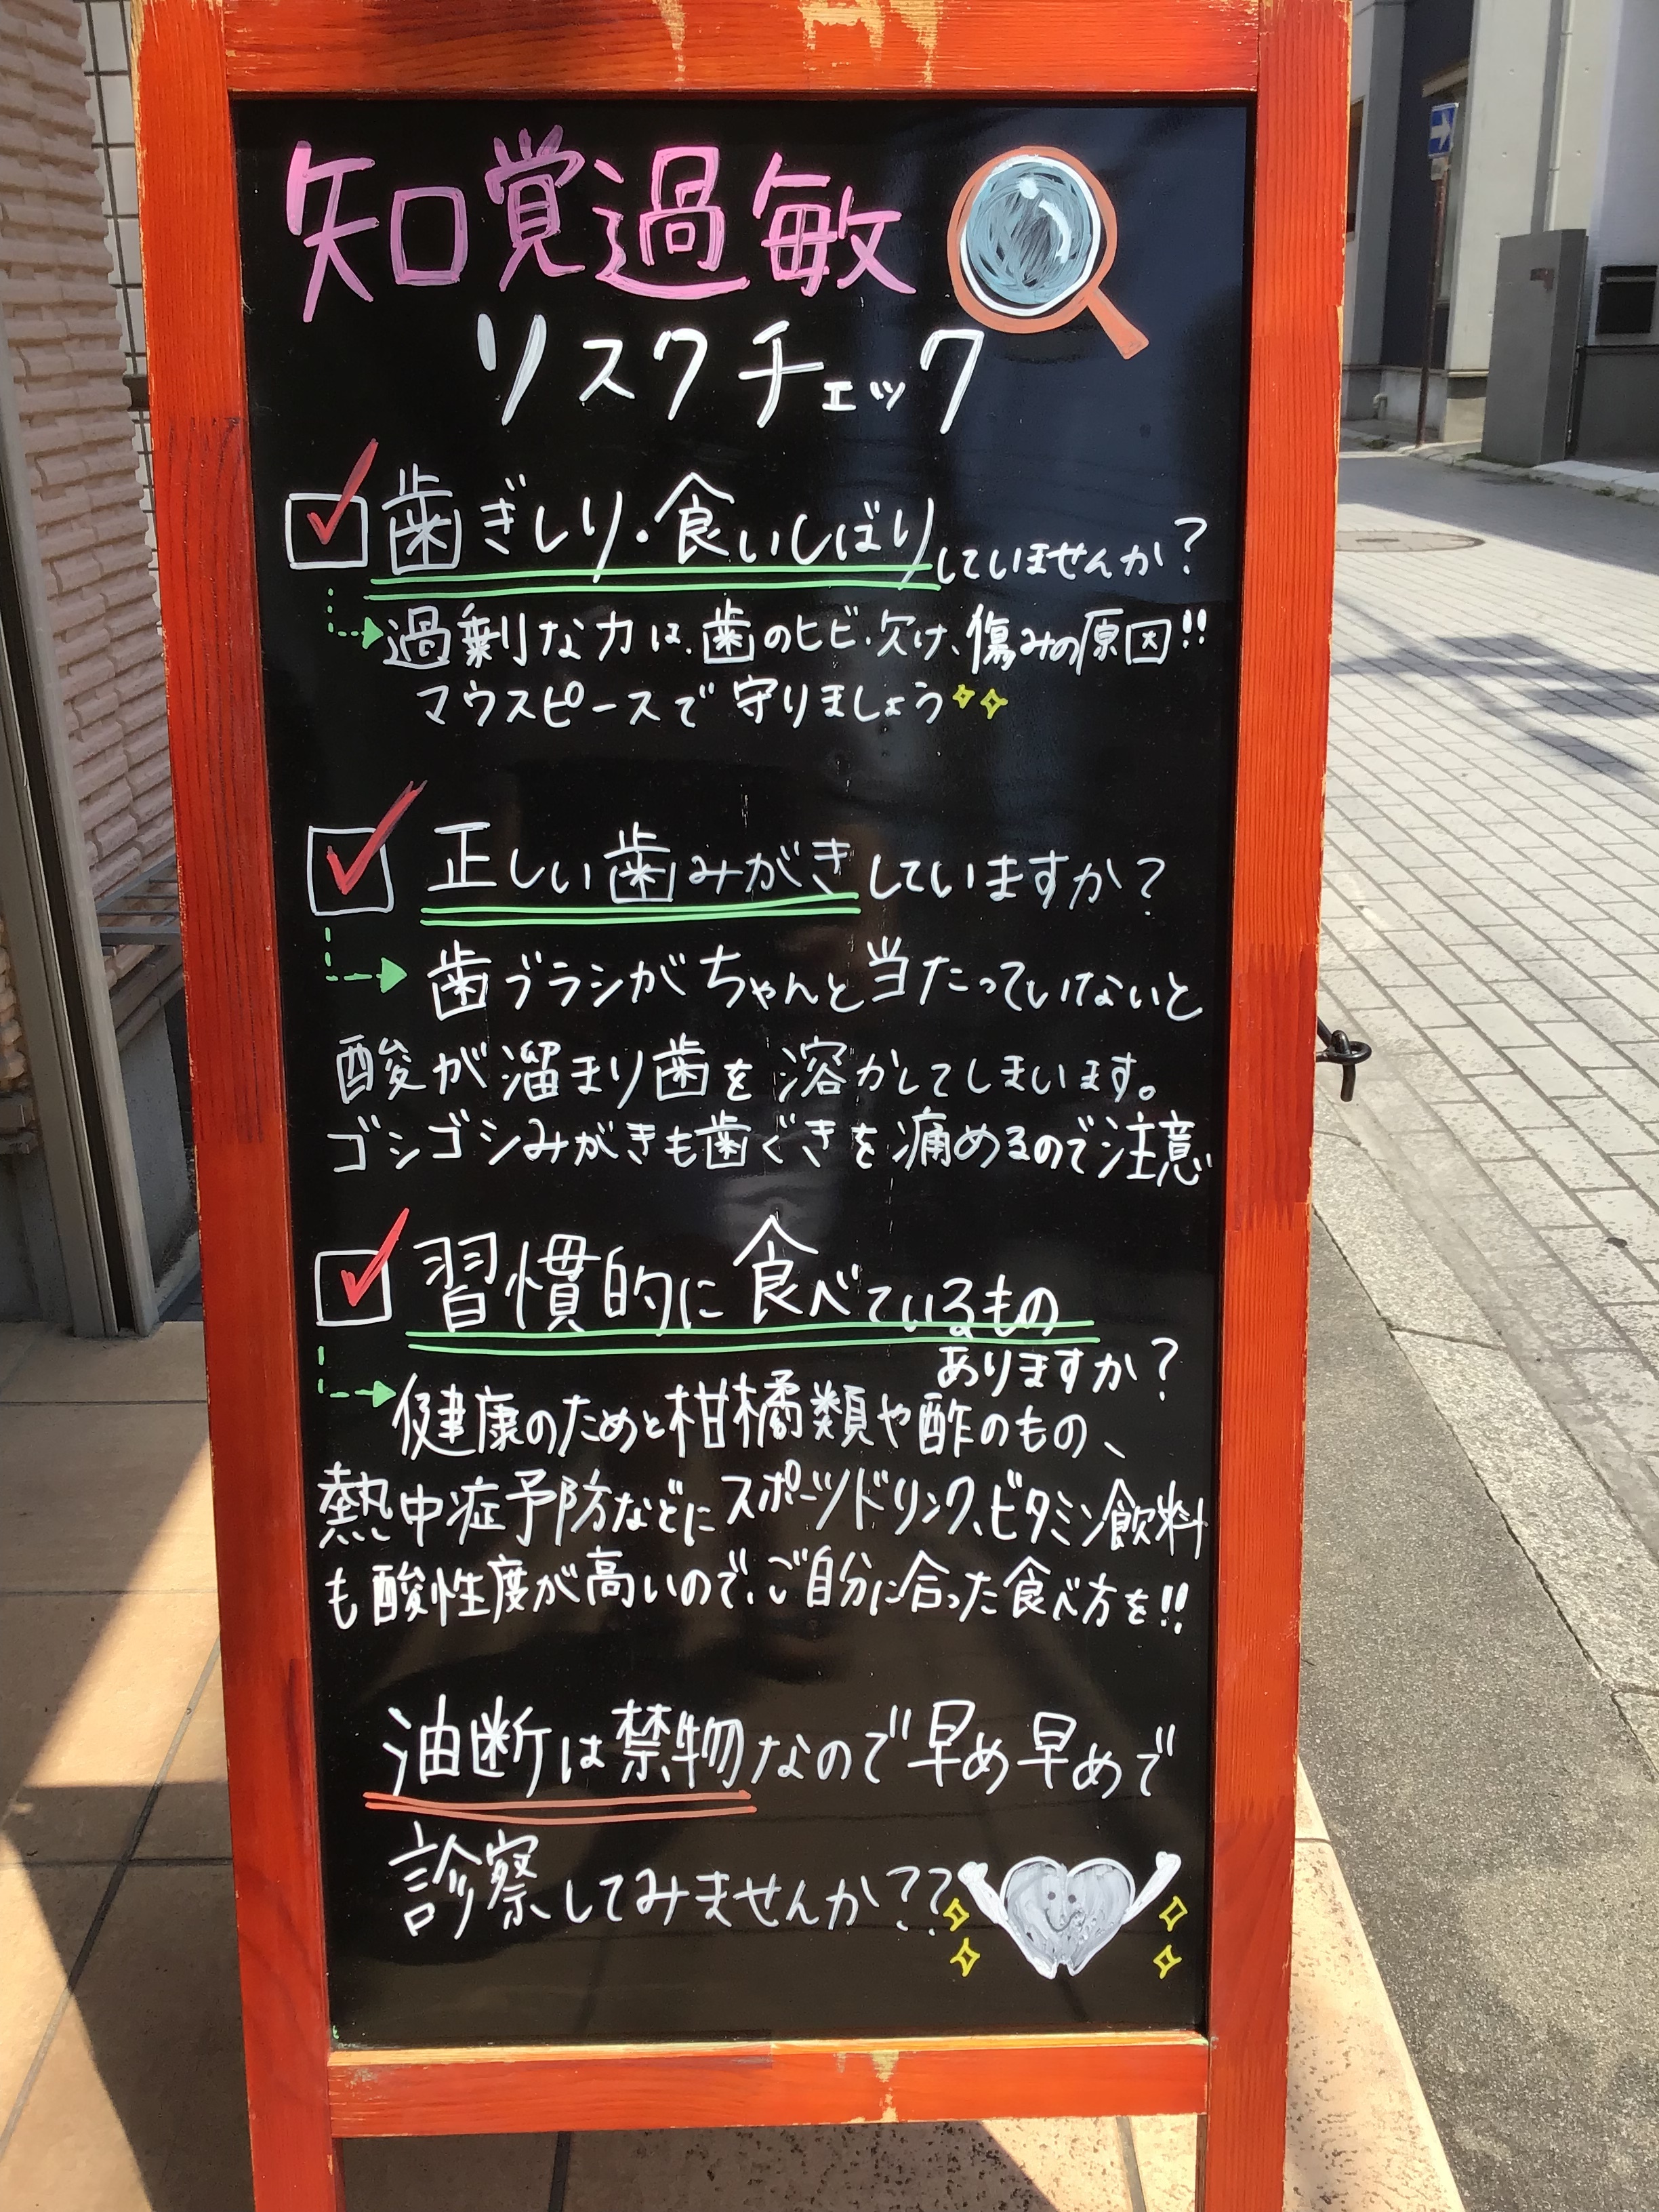 知覚過敏
リスクチェック
歯ぎしり・食いしばりしていませんか?
過剰な力は、歯のヒビ・欠け、傷みの原因!!
マウスピースで守りましょう
正しい歯みがきしていますか?
歯ブラシがちゃんと当たっていないと
酸が溜まり歯を溶かしてしまいます。
ゴシゴシみがきも歯ぐきを痛めるので注意
習慣的に食べているもの
ありますか?
健康のためと柑橘類や酢のもの、
熱中症予防などにスポーツドリンク、ビタミン飲料
も酸性度が高いので、ご自分に合った食べ方を!!
油断は禁物なので早め早めで
診察してみませんか??